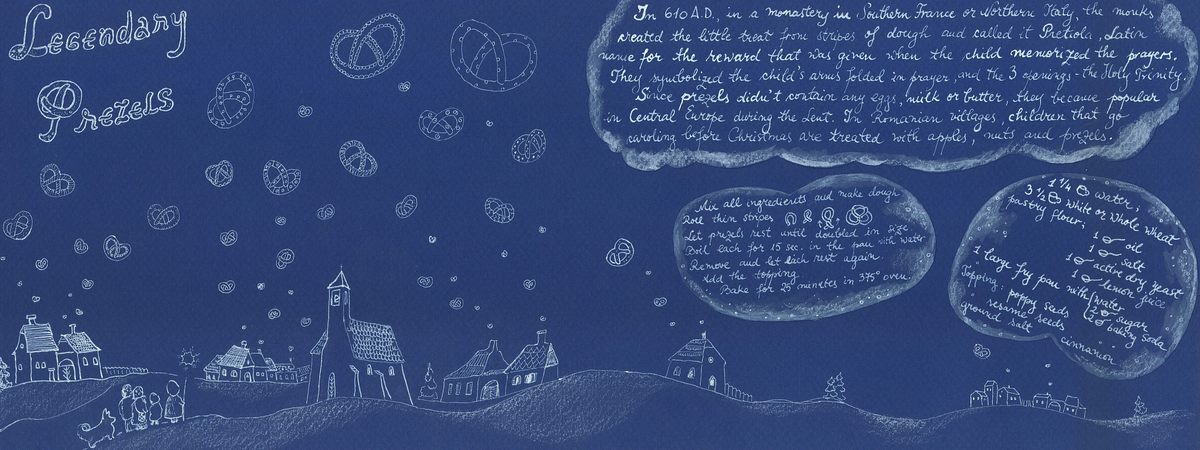 Legendary
Prezels
In 610 A.D., in a monastery in Southern France or Northern Italy, the monks
created the little treat from stripes of dough and called it Pretiola, Latin
name for the reward that was given when the child memorized the prayers.
They symbolized the child's arms folded in prayer, and the 3 openings - the Holy Trinity.
Since prezels didn't contain any eggs, milk or butter, they became popular
in Central Europe during the Lent. In Romanian villages, children that go
caroling before Christmas are treated with apples, nuts and prezels.
Mix all ingredients and make dough
Roll thin stripes
Let prezels rest until doubled in size
Boil each for 15 sec. in the pan with water
Remove and let each rest again
Add the topping
Bake for 25 minutes in 375° oven.
1 1/4 water,
3 1/2 white or whole wheat
pastry flour,
1 oil
1 salt
1 active dry yeast
1 lemon juice
2 sugar
2 baking soda
1 large fry pan with water
Topping: poppy seeds
sesame seeds
ground salt
cinnamon